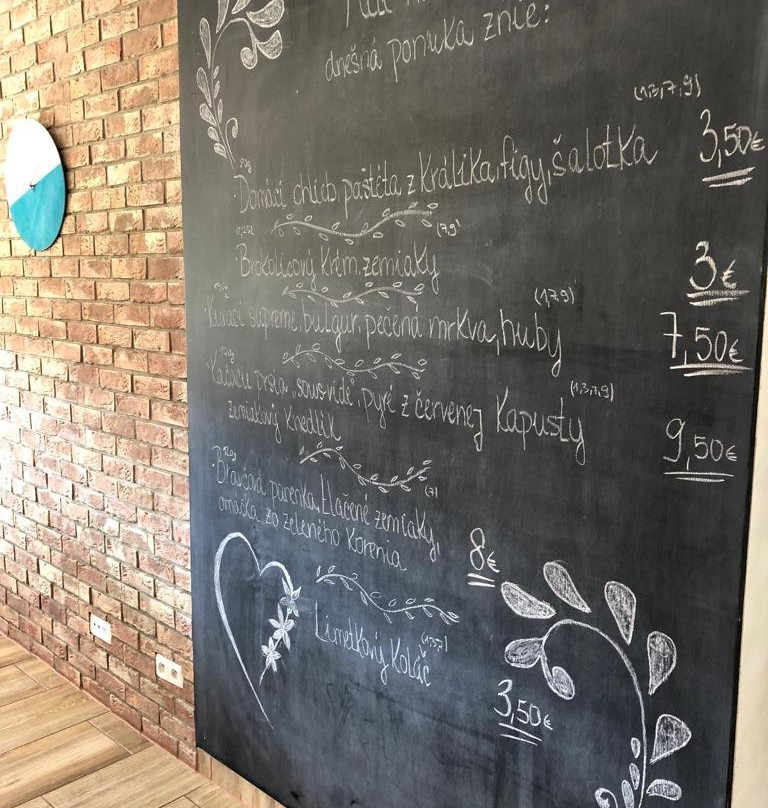 dnešná ponuka znie:
(1,3,7,9)
Domáci chlieb, paštéta z králika, figy, šalotka 3,50€
0,25l (7,9)
Brokolicový krém, zemiaky 3€
(1,7,9)
supreme, bulgur, pečená mrkva, huby 7,50€
(1,3,7,9)
Kačacie prsia "sous-vidé", pyré z červenej kapusty
zemiakový knedlík 9,50€
(7)
Bravčová panenka, tlačené zemiaky,
omáčka zo zeleného korenia 8€
(1,3,7)
Limetkový koláč
3,50€